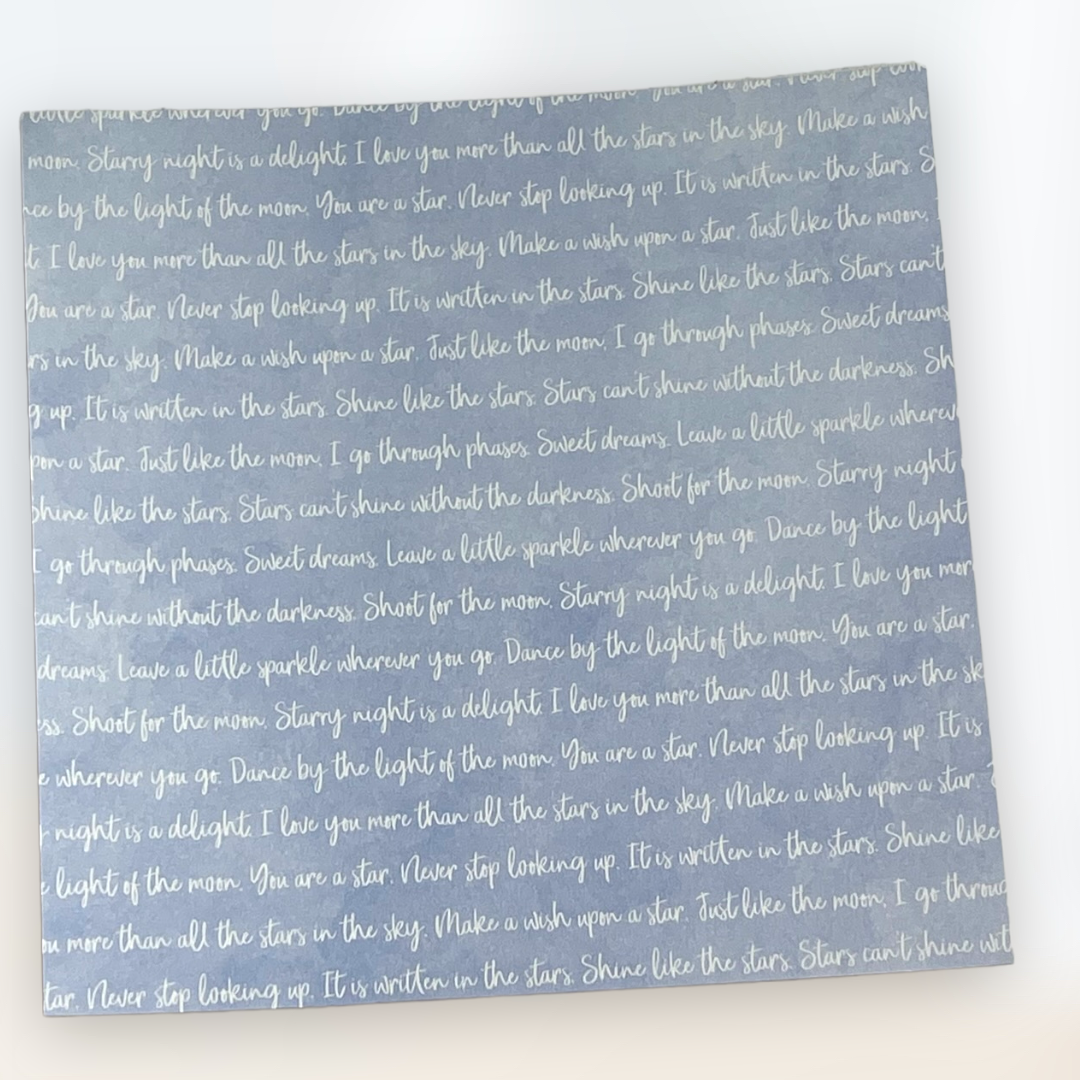 little sparkle wherever you go. Dance by the light of the moon. You are a star. Never stop look
moon. Starry night is a delight. I love you more than all the stars in the sky. Make a wish
nce by the light of the moon. You are a star. Never stop looking up. It is written in the stars. S
t. I love you more than all the stars in the sky. Make a wish upon a star. Just like the moon,
You are a star. Never stop looking up. It is written in the stars. Shine like the stars. Stars can't
rs in the sky. Make a wish upon a star. Just like the moon, I go through phases. Sweet dreams
g up. It is written in the stars. Shine like the stars. Stars can't shine without the darkness. Sh
pon a star. Just like the moon, I go through phases. Sweet dreams. Leave a little sparkle wherev
Shine like the stars. Stars can't shine without the darkness. Shoot for the moon. Starry night
I go through phases. Sweet dreams. Leave a little sparkle wherever you go. Dance by the light
can't shine without the darkness. Shoot for the moon. Starry night is a delight. I love you mor
dreams. Leave a little sparkle wherever you go. Dance by the light of the moon. You are a star.
ess. Shoot for the moon. Starry night is a delight. I love you more than all the stars in the sk
e wherever you go. Dance by the light of the moon. You are a star. Never stop looking up. It is
night is a delight. I love you more than all the stars in the sky. Make a wish upon a star.
e light of the moon. You are a star. Never stop looking up. It is written in the stars. Shine like
ou more than all the stars in the sky. Make a wish upon a star. Just like the moon, I go throug
tar. Never stop looking up. It is written in the stars. Shine like the stars. Stars can't shine wit